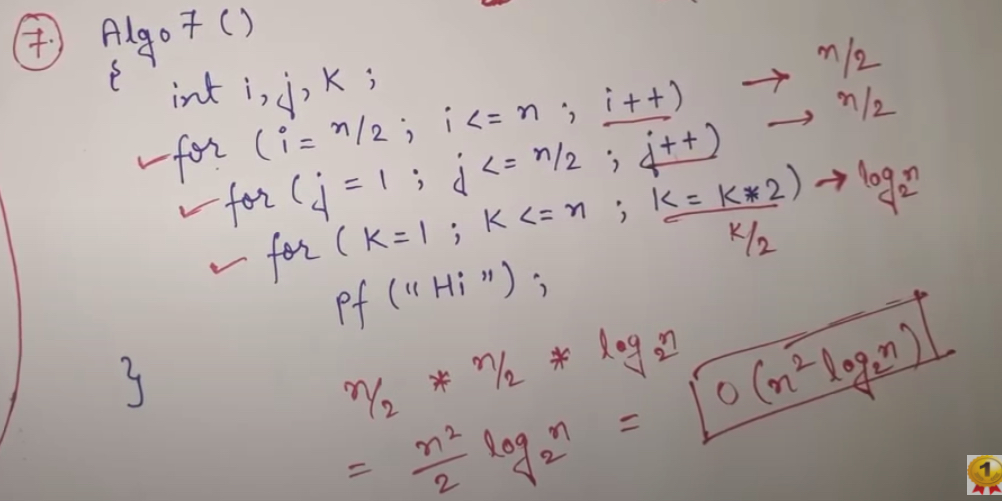 7. Algo7()
{
int i, j, K;
for (i = n/2 ; i <= n ; i++) → n/2
for (j = 1 ; j <= n/2 ; j++) → n/2
for (K=1 ; K <= n ; K = K*2) → log₂n
K/2
Pf ("Hi");
}
n/2 * n/2 * log₂n
= n²/2 log₂n = O(n² log₂n)
1